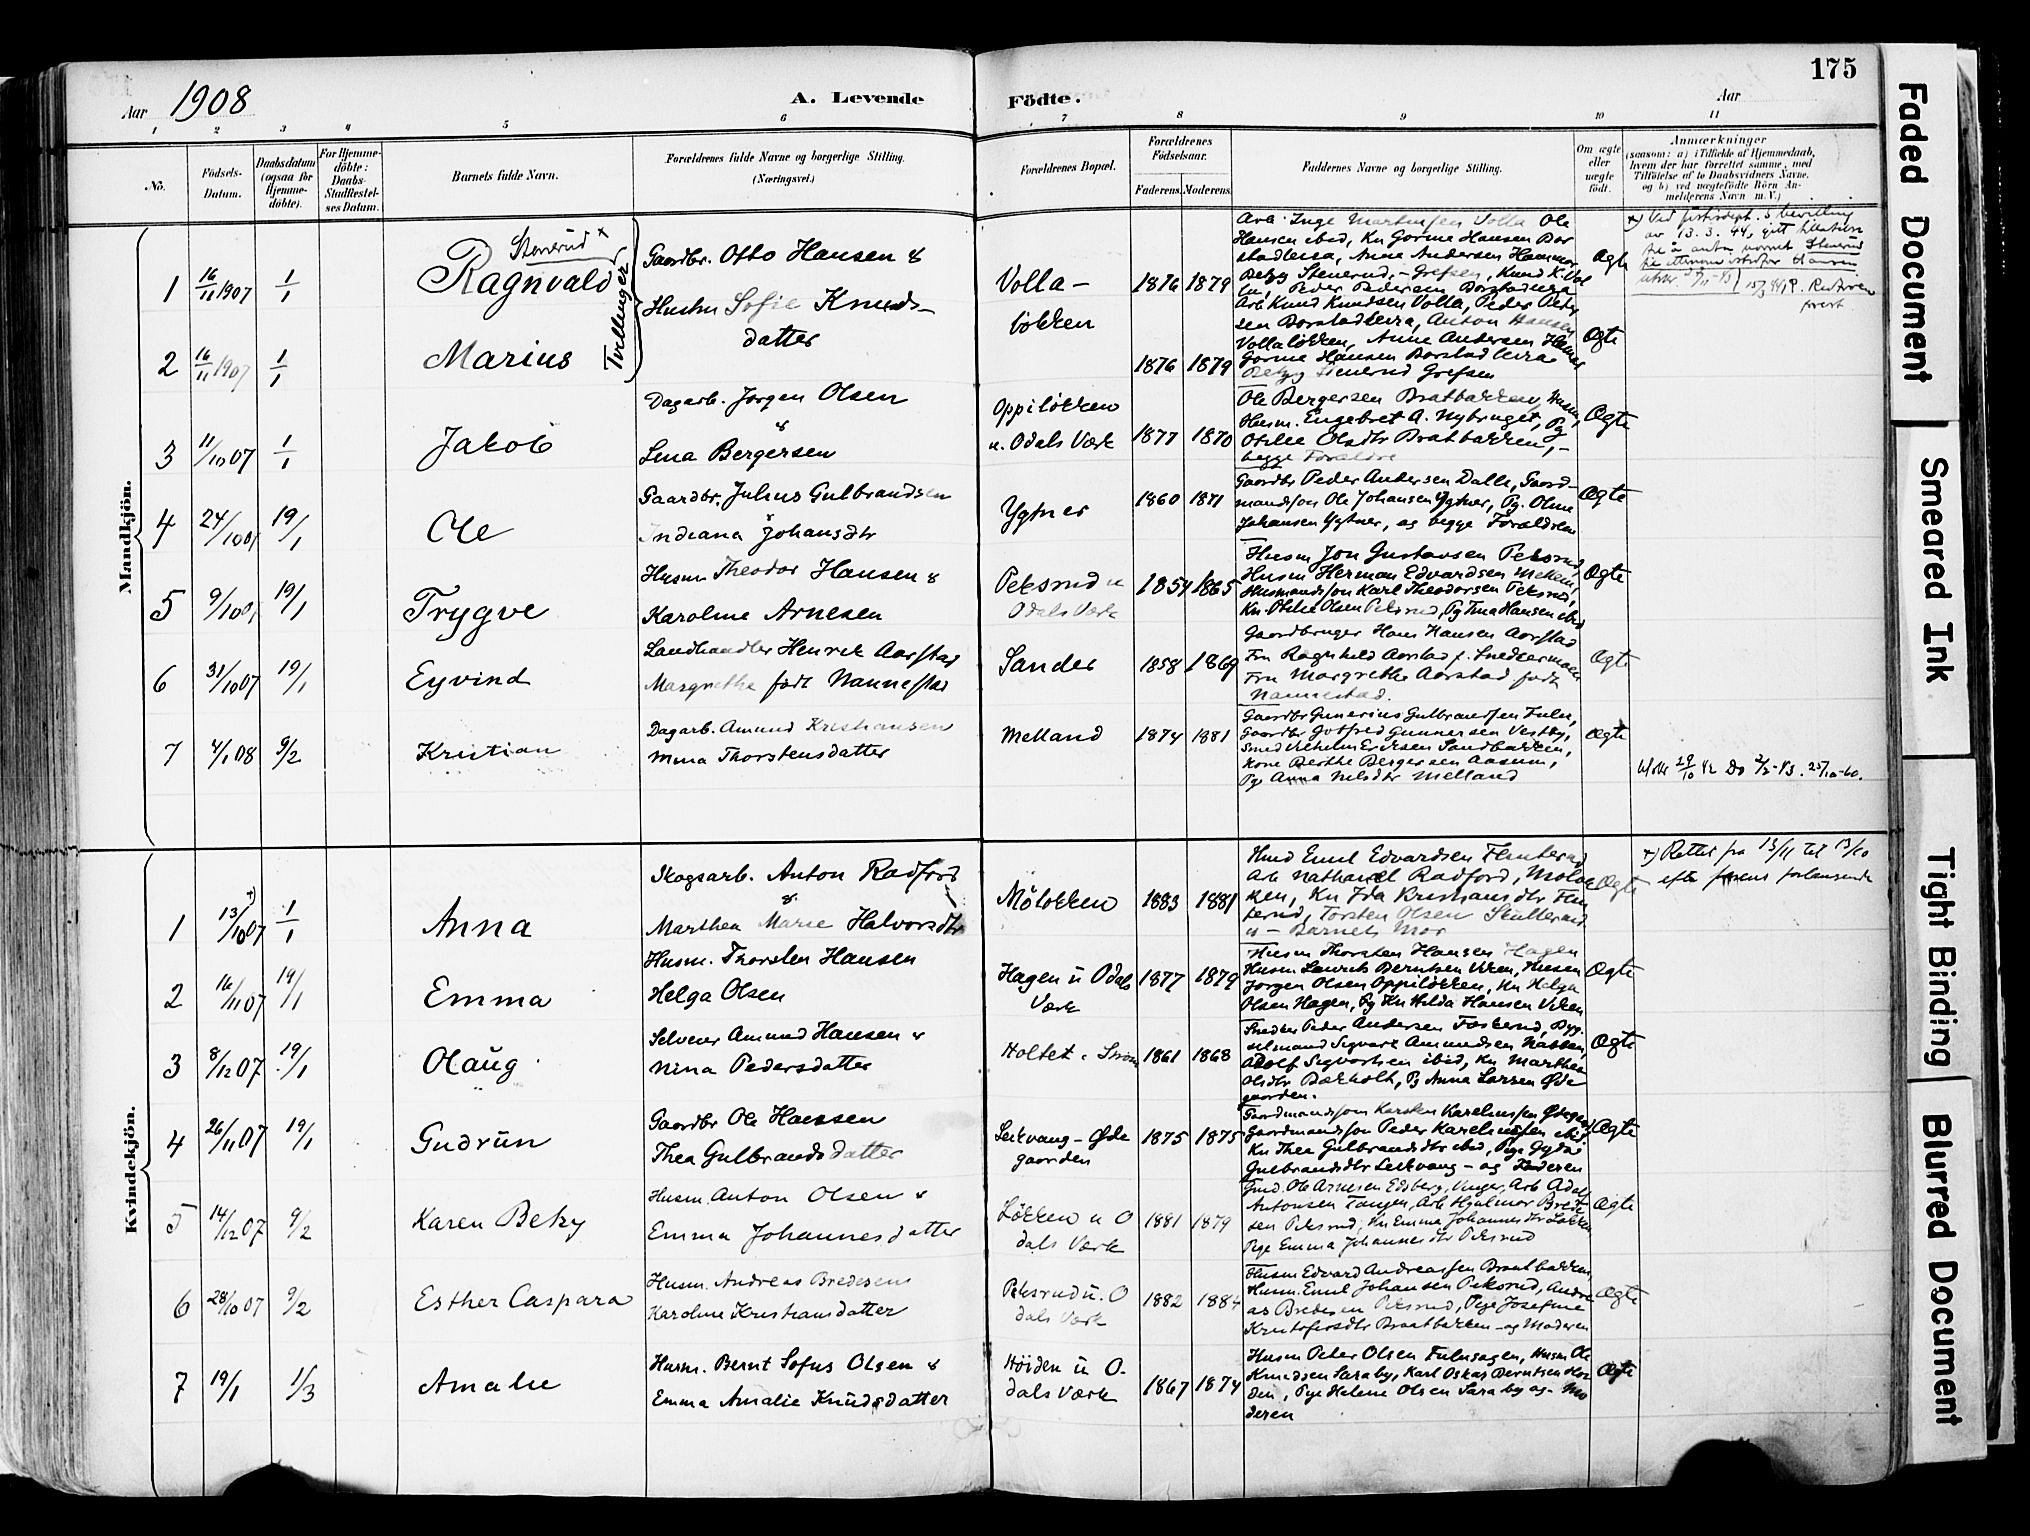 175
Aar 1908
A. Levende Födte.
Aar
1 2 3 4 5 6 7 8 9 10 11
No.
Födsels-
Datum.
Daabsdatum
(ogsaa för
Hjemme-
döbte).
For Hjemme-
döbte:
Daabs-
Stadfæstel-
ses Datum.
Barnets fulde Navn.
Forældrenes fulde Navne og borgerlige Stilling.
(Næringsvei.)
Forældrenes Bopæl.
Forældrenes
Födselsaar.
Faderens. Moderens.
Faddernes Navne og borgerlige Stilling.
Om ægte
eller
uægte
født.
Anmærkninger
(saasom: a) i Tilfælde af Hjemmedaab,
hvem der har forrettet samme, med
Tilföielse af to Daabsvidners Navne,
og b) ved uægtefödte Börn An-
melderens Navn m. V.)
Mandkjön.
1 16/11 1907 1/1
Stenerud x
Ragnvald
Tvillinger
Gaardbr. Otto Hansen &
Hustru Sofie Knuds-
datter
Volla-
lökken
1876 1879
Hansen ibid, Kn Gorine Hansen Bor
stadleira, Anne Andersen Hammer
Betzy Stenerud, - Grefsen, Knud K. Vol
la, Peder Pedersen Borstadleira
Ægte
av 13.3.44, gitt tillatelse
2 16/11 1907 1/1
Marius
1876 1879
Arb Knud Knudsen Volla, Peder Peder
sen Borstadleira, Anton Hansen
Vollalökken, Anne Andersen Hamer
Gorine Hansen Borstadleira
Betzy Stenerud Grefsen
Ægte
3 11/10 07 1/1
Jakob
Dagarb. Jørgen Olsen
&
Lina Bergersen
Oppilökken
u. Odals Værk
1877 1870
Ole Bergersen Bratbakken, Husm,
Husm. Engebret A. Nybruget, Pg
Otilie Olsdtr Bratbakken, -
begge Forældre
Ægte
4 24/10 07 19/1
Ole
Gaardbr. Julius Gulbrandsen
&
Indiana Johansdtr
Ygtner
1860 1871
Gaardbr Peder Andersen Dalle, Gaard-
mandssøn Ole Johansen Ygtner, Pg. Oline
Johansen Ygtner, og begge Forældrene
Ægte
5 9/10 07 19/1
Trygve
Husm Theodor Hansen &
Karoline Arnesen
Peksrud u
Odals Værk
1854 1865
Husm Jon Gustavsen Peksrud,
Husm Herman Edvardsen
Husmandssøn Karl Theodorsen Peksrud,
Olsen Peksrud, Pg Tina Hansen ibid
Ægte
6 31/10 07 19/1
Eyvind
Landhandler Henrik Aarstad
Margrethe født Nannestad
Sander
1858 1869
Gaardbruger Hans Hansen Aarstad
Fru Ragnhild Aarstad
Fru Margrethe Aarstad født
Nannestad.
Ægte
7 4/1 08 9/2
Kristian
Dagarb. Amund Kristiansen
Mina Thorstensdatter
Melland
1874 1881
Gaardbr Gunerius Gulbrandsen Fulu,
Gaardbr Gotfred Gunnersen Vestby,
Smed Vilhelm Eriksen Sandbakken,
Kone Berthe Bergersen Aasum,
Pge Anna Nilsdtr Melland
Ægte
29/10 42 Do 2/2-43. 25/10-60.
Kvindekjön.
1 13/10 07 x) 1/1
Anna
Skogsarb. Anton Radford
&
Marthea Marie Halvorsdtr
Mölökken
1883 1881
Husm Emil Edvardsen Flenterud
Arb Nathanael Radford, Mølök
ken, Kn Ida Kristiansdtr Flen
terud, Torsten Olsen Skullerud
- Barnets Mor
Ægte
x) Rettet fra 13/11 til 13/10
2 16/11 07 19/1
Emma
Husm. Thorsten Hansen
Helga Olsen
Hagen u Odals
Værk
1877 1879
Husm Thorsten Hansen Hagen
Husm Laurits Berntsen Viken, Husm
Jørgen Olsen Oppilökken, Kn Helga
Olsen Hagen, Pg Kn Hilda Hansen Viken
Ægte
3 8/12 07 19/1
Olaug
Selveier Amund Hansen &
Nina Pedersdatter
Holtet i Strøm
1861 1868
Snedker Peder Andersen Foskerud, Byg
selmand Sigvart Amundsen Nabben,
Adolf Sigvartsen ibid, Kn Marthea
Olsdtr Bækholt, Pg Anna Larsen Øde
gaarden.
Ægte
4 26/11 07 19/1
Gudrun
Gaardbr Ole Hansen
Thea Gulbrandsdatter
Leikvang - Øde
gaarden
1875 1875
Gaardmandssøn Karsten Karelinssen Ødegad
Gaardmandssøn Peder Karelinssen ibid.
Kn Thea Gulbrandsdtr ibid, Pige Gyda
Gulbrandsdtr Leikvang - og Faderen
Ægte
5 14/12 07 9/2
Karen Betzy
Husm. Anton Olsen &
Emma Johannesdatter
Løkken u O
dals Værk
1881 1879
Gmd. Ole Arnesen Edsberg, Vinger, Arb Adolf
Antonsen Tangen, Arb Hjalmar Brede
sen Peksrud, Kn Emma Johannesdtr Løkken
Pige Emma Johannesdtr Peksrud
Ægte
6 28/10 07 9/2
Esther Caspara
Husm. Andreas Bredesen
Karoline Kristiansdatter
Peksrud u. O
dals Værk
1882 1884
Husm Edvard Andreassen Bratbakken,
Husm. Emil Johansen Peksrud, Andre
as Bredesen Peksrud, Pige Josefine
Kristofersdtr Bratbakken - og Moderen
Ægte
7 19/1 1/3
Amalie
Husm. Bernt Sofus Olsen &
Emma Amalie Knudsdatter
Höiden u O-
dals Værk
1867 1874
Husm Peter Olsen Fuluhagen, Husm Ole
Knudsen Saraby, Karl Oskar Berntsen Høi
den, Pige Helene Olsen Saraby og - Mo
deren
Ægte
Faded Document
Smeared Ink
Tight Binding
Blurred Document